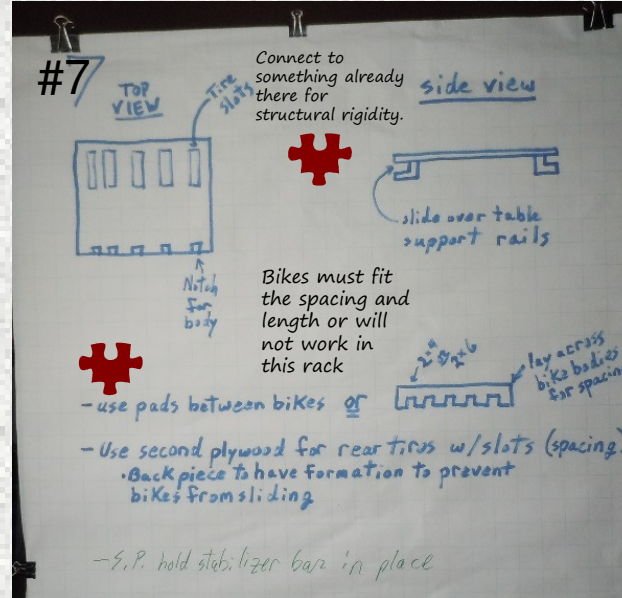 #7
TOP
VIEW
Tire
slots
Connect to
something already
there for
structural rigidity.
side view
slide over table
support rails
Notch
for
body
Bikes must fit
the spacing and
length or will
not work in
this rack
lay across
bike bodies
for spacin
-use pads between bikes or
-Use second plywood for rear tires w/slots (spacing)
•Back piece to have formation to prevent
bikes from sliding
-S.P. hold stabilizer bar in place